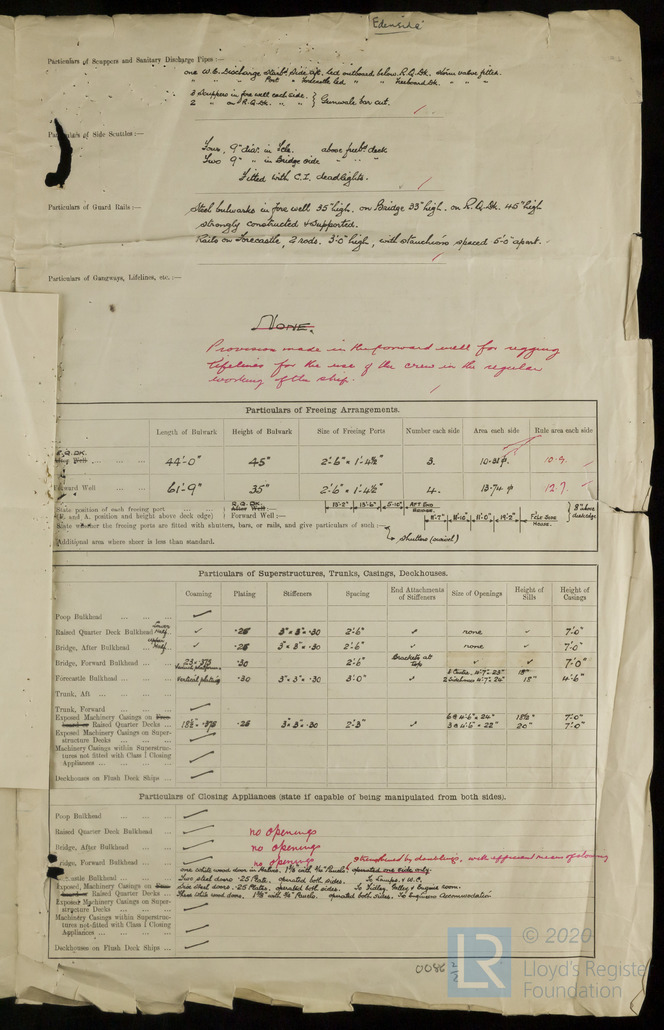 Edenside
Particulars of Scuppers and Sanitary Discharge Pipes :—
one W.C. Discharge Starb'd Side aft. led outboard below R.Q.Dk. storm valve fitted.
" " " Port " Forecastle led " Freeboard Dk. " " "
3 Scuppers in fore well each side. } Gunwale bar cut.
2 " on R.Q.Dk. " "
Particulars of Side Scuttles :—
Four, 9" diar. in Fcle. above freebd deck
Two 9" " in Bridge side " " "
Fitted with C.I. deadlights.
Particulars of Guard Rails :—
Steel bulwarks in fore well 35" high. on Bridge 33" high. on R.Q.Dk. 45" high
strongly constructed & supported.
Rails on Forecastle, 2 rods, 3'-0" high, with stanchions spaced 5'-0" apart.
Particulars of Gangways, Lifelines, etc. :—
None.
Provision made in the forward well for rigging
lifelines for the use of the crew in the regular
working of the ship.
Particulars of Freeing Arrangements.
Length of Bulwark Height of Bulwark Size of Freeing Ports Number each side Area each side Rule area each side
R.Q.DK.
Well 44'-0" 45" 2'-6" × 1'-4½" 3. 10.31 10.9.
Forward Well 61'-9" 35" 2'-6" × 1'-4½" 4. 13.74 12.9.
State position of each freeing port R.Q.DK. 15'-2" 13'-6" 5'-10" AFT END HOUSE. 8" above deck edge
(F. and A. position and height above deck edge) Forward Well :— 8'-7" 11'-0" 19'-2" FCLE SIDE HOUSE.
State whether the freeing ports are fitted with shutters, bars, or rails, and give particulars of such :—
Shutters
Additional area where sheer is less than standard.
Particulars of Superstructures, Trunks, Casings, Deckhouses.
Coaming Plating Stiffeners Spacing End Attachments of Stiffeners Size of Openings Height of Sills Height of Casings
Poop Bulkhead
Raised Quarter Deck Bulkhead Lower Half .26 3" × 3" × .30 2'-6" none 7'-0"
Bridge, After Bulkhead Upper Half .26 3" × 3" × .30 2'-6" none 7'-0"
Bridge, Forward Bulkhead 23 × .375 .30 2'-6" Brackets at top 7'-0"
Forecastle Bulkhead Vertical plating .30 3" × 3" × .30 3'-0" 4'-7" × 24" 18" 4'-6"
Trunk, Aft
Trunk, Forward
Exposed Machinery Casings on
Raised Quarter Decks 18½" × .375 .26 3" × 3" × .30 2'-3" 6 @ 4'-6" × 24" 18½" 7'-0"
3 @ 4'-6" × 22" 20" 7'-0"
Exposed Machinery Casings on Superstructure Decks
Machinery Casings within Superstructures not fitted with Class I Closing Appliances
Deckhouses on Flush Deck Ships
Particulars of Closing Appliances (state if capable of being manipulated from both sides).
Poop Bulkhead
Raised Quarter Deck Bulkhead no openings
Bridge, After Bulkhead no openings
Bridge, Forward Bulkhead no openings strengthened by doublings, with efficient means of closing
one white wood door in Halves. operated one side only.
Forecastle Bulkhead Two steel doors .25 Plate. operated both sides. To Lamps & W.C.
Exposed Machinery Casings on Six steel doors .25 Plates, operated both sides. To Fidley, Galley & Engine room.
Raised Quarter Decks Three white wood doors. operated both sides. To Engineers Accommodation
Exposed Machinery Casings on Superstructure Decks
Machinery Casings within Superstructures not fitted with Class I Closing Appliances
Deckhouses on Flush Deck Ships
0086
LR
© 2020
Lloyd's Register
Foundation